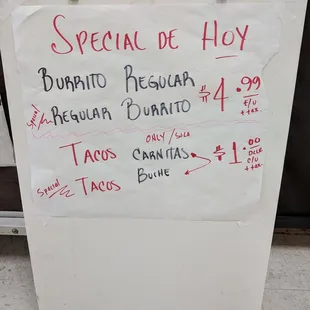 SPECIAL DE HOY
BURRITO REGULAR
Special REGULAR BURRITO
$4.99
E/U
+ tax
ONLY/SOLO
TACOS CARNITAS
Special TACOS BUCHE
$1.00
C/U
+ tax